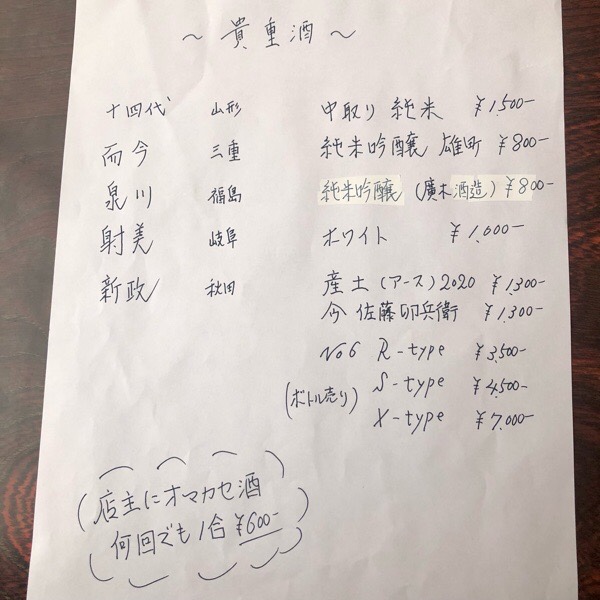 ～ 貴重酒 ～
十四代 山形 中取り 純米 ¥1,500-
而今 三重 純米吟醸 雄町 ¥800-
泉川 福島 純米吟醸 (廣木酒造) ¥800-
射美 岐阜 ホワイト ¥1,000-
新政 秋田 産土 (アース) 2020 ¥1,300-
今 佐藤卯兵衛 ¥1,300-
No6 R-type ¥3,500-
(ボトル売り) S-type ¥4,500-
X-type ¥7,000-
店主にオマカセ酒
何回でも1合 ¥600-